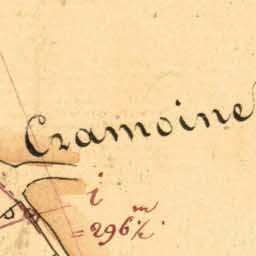 Cramoine
i
= 296